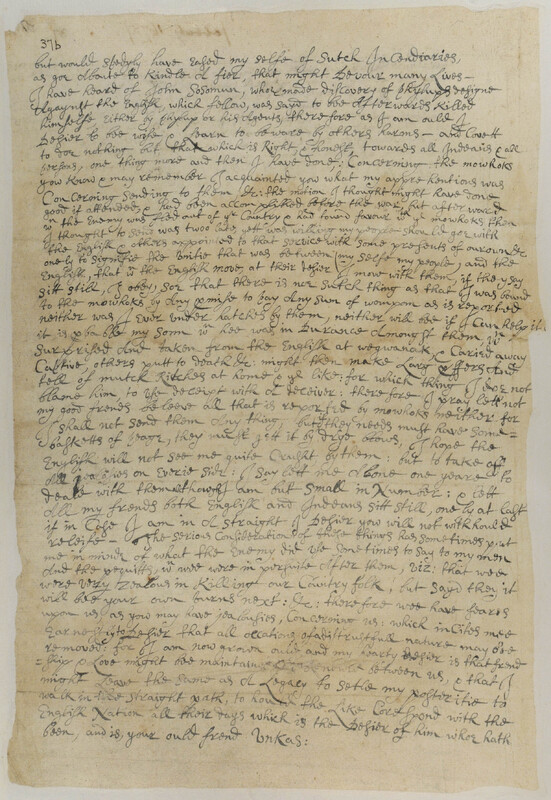 37b
but would speedyly have eased my selfe of Sutch Incendiaries,
as goe aboute to Kindle a fier, that might Devour many Lives –
I have heard of John Sosomun, who made discovery of phillips designe
Against the English, which fellow, was sayd to bee afterwards Killed
himselfe Either by phillip or his Agents, therefore as I am ould I
Desier to bee wise & Learn to beware by others harms – and Covett
to doe nothing but that which is Right & honest towards all Indeans & all
persons, one thing more and then I have done: Concerning the mowhoks
you know & may remember I acquainted you what my apprehentions was
Concerning Sending to them &c: the motion I thought might have done
good if attended & had been accomplished before the war, but afterward
wn the Enemy was fled out of ye Country & had found favour wth ye mowhoks then
I thought to send was two late, yett was willing my people should goe with
the English & others appoined to that service with some presents of our own &c
onely to Signifie the Unitie that was between my selfe my people, and the
English, that wn the English move, at their desier I move with them, if they say
sitt still, I obey, Sor that there is noe Sutch thing as that I was bound
to the mowhoks by Any promise to pay Any Sum of wompom as is reported
neither was I Ever under hatches by them, neither will bee if I Can help it:
it is probable my Sonn wn hee was in Durance Amongst them wn
Surprised And taken from the English at & Caried away
Captive, others putt to Death &c: might then make Larg offers And
tell of mutch Ritches at home & ye Like: for which thing I doe not
blame him, to Use deceipt with a deceiver: therefore I pray lett not
my good frends beleeve all that is reported by mowhoks neither for
I shall not send them Any thing, but if they needs must have Some =
basketts of peage, they must gett it by drye blows, I hope the
English will not see me quite Crusht by them: but to take off
all Jealosies on Everie Sid: I Say lett me alone one yeare to
Deale with them though I am but Small in Number: & lett
all my frends both English and Indeans sitt still, one ly at Last
if in Case I am in a straight I Desier you will not withhould
releife – the serious Consideration of these things has sometimes put
me in minde of what the Enemy did Use sometimes to Say to my men
And the pequitts, wn wee were in persuite after them, Viz: that wee
were Very Zealous in Killing our Country folk, but Sayd they it
will bee your own turns next: &c: therefore wee have fears
upon us, as you may have Jealousies, Concerning us: which incites mee
Earnestly to Desier that all ocations of a distrustfull nature may bee
removed: for I am now grown ould and my hearty desier is that frend
=ship & Love might bee maintained between us, & that I
might Leave the same as a Legacy to Settle my posteritie to
walk in the straight path, to hould the Like Corespond with the
English Nation all their days which is the desier of him whoe hath
been, and is, your ould frend Unkas: